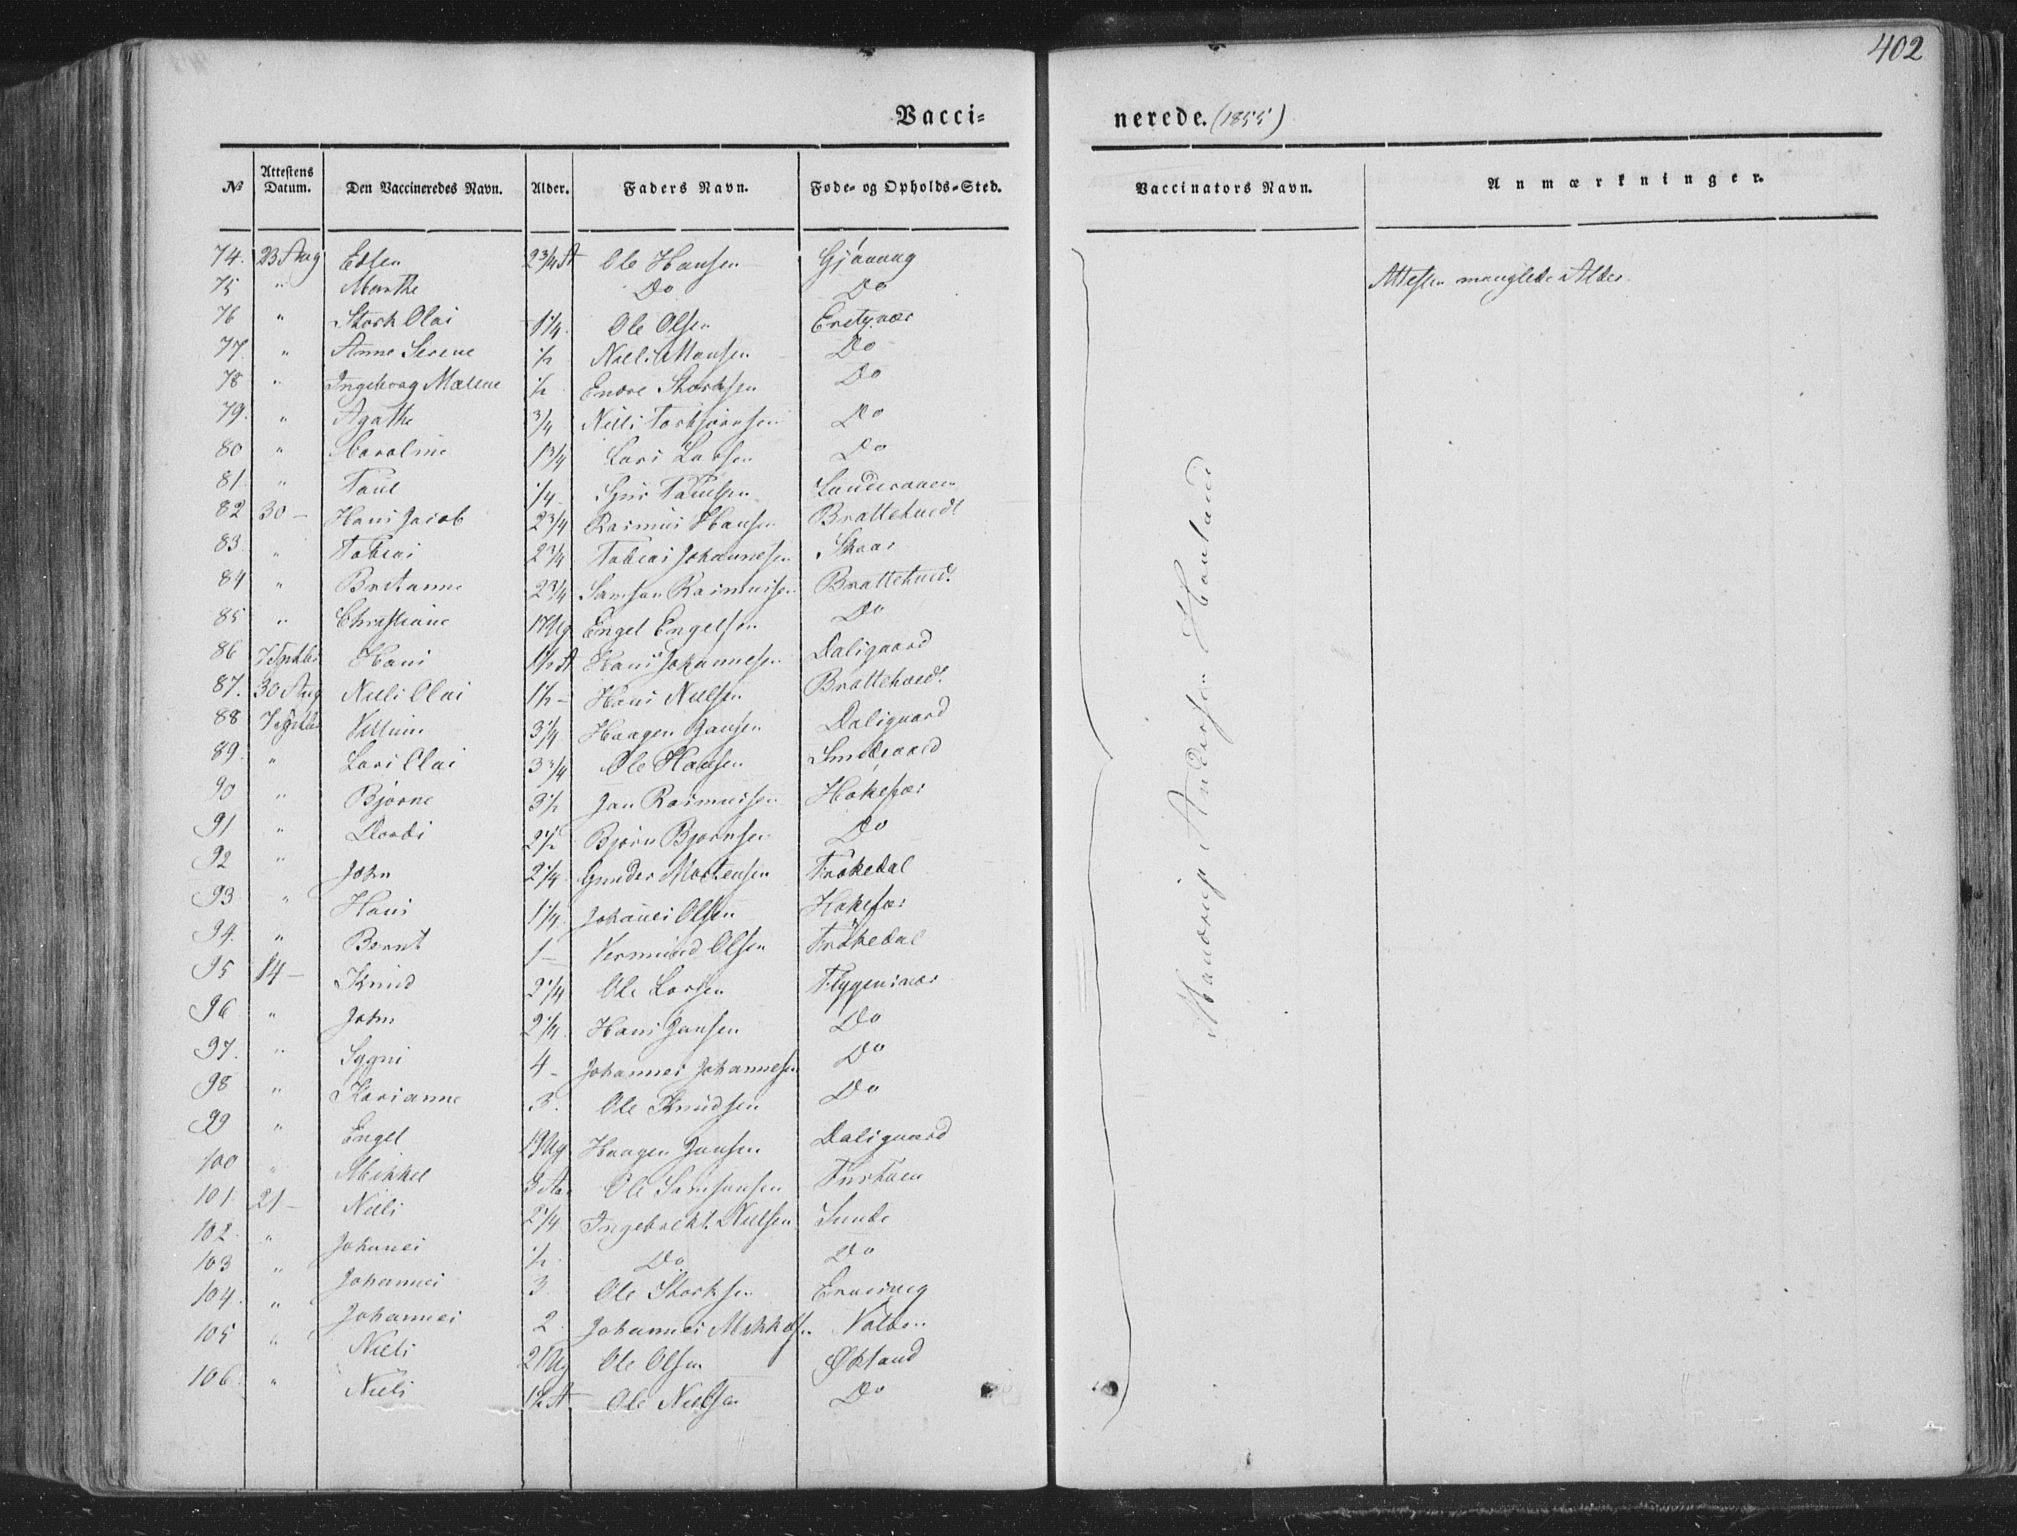 402
Vacci- nerede. (1855)
No Attestens Datum. Den Vaccineredes Navn. Alder. Faders Navn. Føde- og Opholds-Sted. Vaccinators Navn. Anmærkninger.
74. 23 Aug 2 3/4 A Ole Hansen
75 " Marthe Do Do Attesten manglede Alder.
76 " Stork Olai 1 1/4. Ole Olsen
77. " Anne Serene 1/2 Niels Monsen Do
78 " Ingeborg Malene 1/2 Endre Storksen Do
79. " Agathe 3/4 Niels Torbjørnsen Do
80 " Caroline 1 3/4 Lars Larsen Do
81. " Poul 1/4 Poulsen
82 30 - Hans Jacob 2 3/4 Rasmus Hansen Brattehvedt
83. " Tobias 2 3/4 Tobias Johannesen Skaar
84 " Britanne 2 3/4 Samson Rasmussen Brattehvedt
85 " Christiane 17 Ug Engel Engelsen Do
86 7 Septbr Hans 1 1/2 A Hans Johannesen Dalsgaard
87. 30 Aug Niels Olai 1 1/2 - Hans Nielsen Brattehvedt
88 7 Septbr 3 1/4 Haagen Jansen Dalsgaard
89. " Lars Olai 3 3/4 Ole Hansen
90 " Bjørne 3 1/2 Jan Rasmussen
91 " Dordi 2 1/2 Bjørn Bjørnsen Do
92 " John 2 1/4 Gunder Mortensen
93. " Hans 1 1/4. Johanes Olsen
94. " Bernt 1 - Vermund Olsen
95 14 - Knud 2 1/4 Ole Larsen Flyggensvær
96. " John 2 1/4. Hans Jansen Do
97. " Sygni 4 - Johannes Johannesen Do
98 " Karianne 3. Ole Knudsen Do
99 " Engel 19 Ug Haagen Jansen Dalsgaard
100 " Mikkel 3 Aar Ole Samsonsen
101. 21 - Niels 2 1/4 Ingebrekt Nielsen Sunde
102. " Johanes 1/2. Do Do
103 " Johannes 3. Ole Storksen Ervesvig
104. " Johannes 2 Johannes Mikkelsen
105 " Niels 21 Ug Ole Olsen Økland
106. " Niels 1 1/2 A Ole Nielsen Do
Andersen Houland